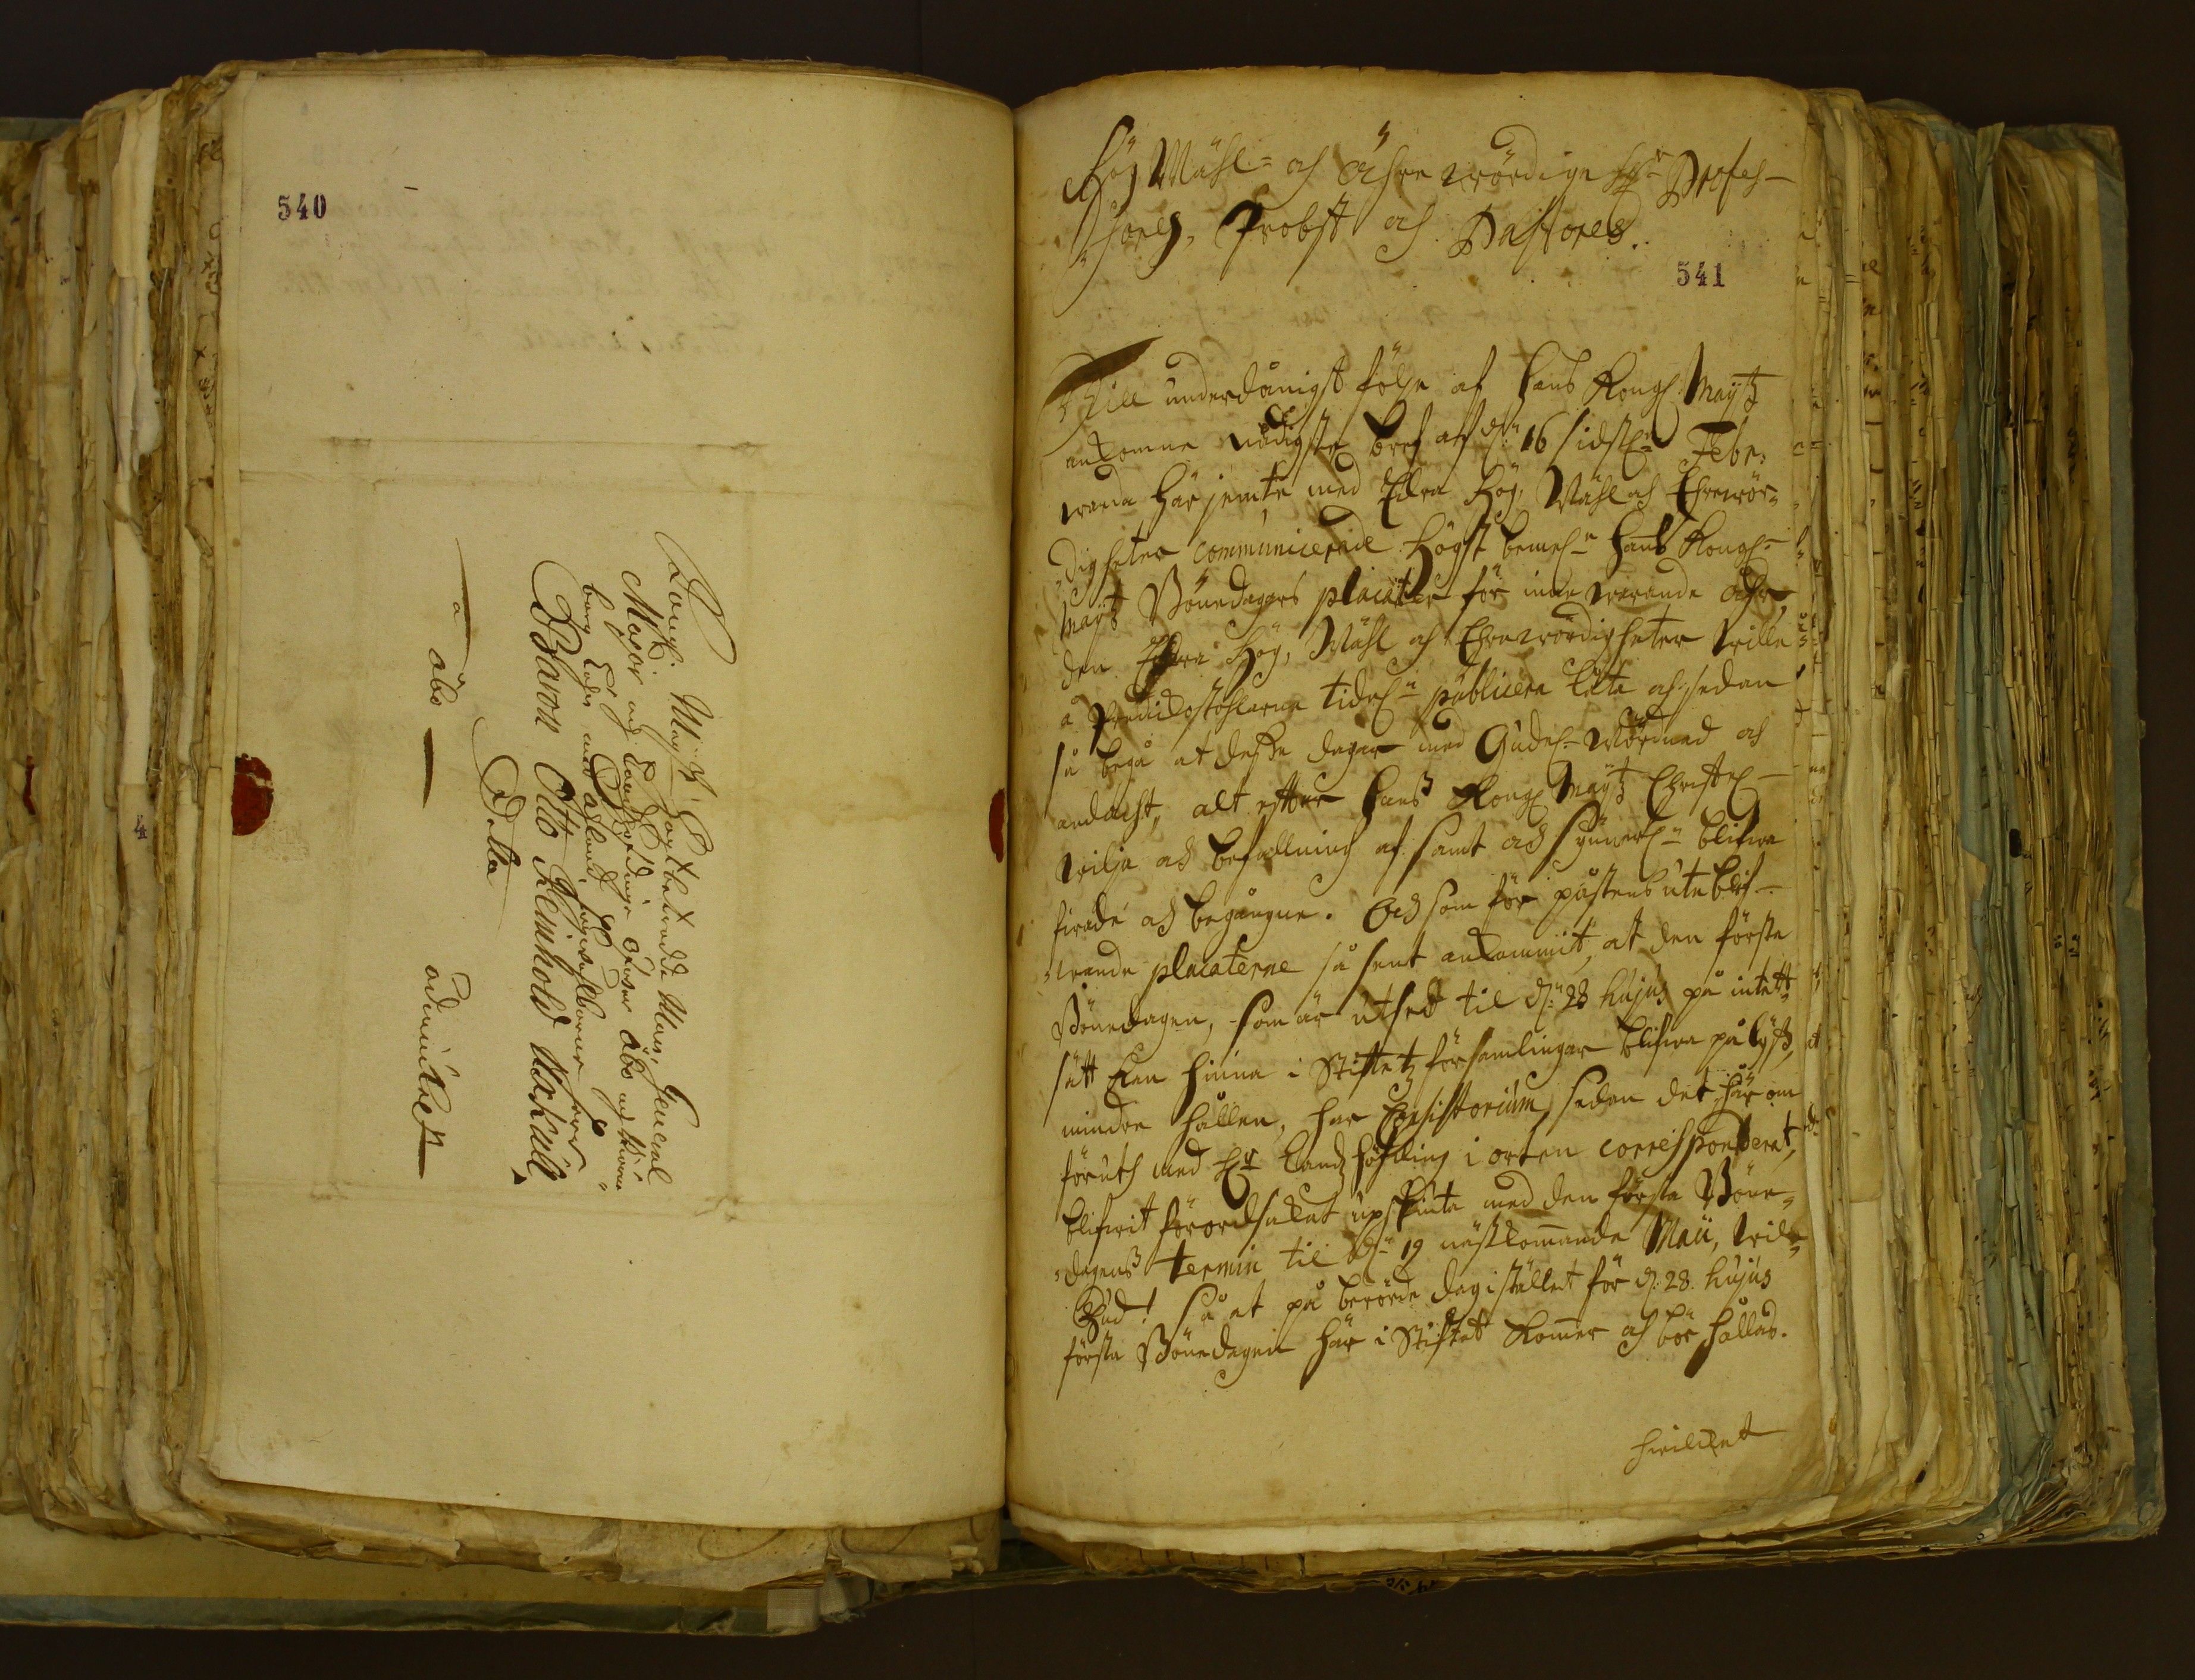 540
Kongl: May:tz Högt betrodde Man, General
Major och Landzhöfdinge öfwer Åbo och Biörne-
borg Lähn med Åhland, Högwälborne herr
Baron Otto Reinhold Üxkull
Detta
a
Åbo
ödmiukest
Hög Wähl- och Ähre wördige H:r Profes-
sorer, Probst och Pastores.
541
Till underdånigst följe af Hans Kongl: May:tz
ankomne nådigste bref af d: 16 sidstl: Febr:
warda härjemte med Edra Hög, Wähl och Ehrewör-
digheter communicerade högst bemel:te Hans Kongl:
May:tz Bönedagars placater för inne warande åhr,
den Edra Hög, Wähl och Ehrewördigheter wille
å Predikostohlarna tidel:n publicera låta och sedan
så begå at desse dagar med Gudel: wördnad och
andacht, alt efter Hans Kongl May:tz Christl:
wilja och befallning af samt och synnerl:n blifwa
firade och begångne. Och som för påstens uteblif-
wande placaterne så sent ankommit, at den första
Bönedagen, som är utsedt til d: 28 hujus på intett
sätt kan hinna i Stiftetz församlingar blifwa pålyst,
mindre hållen, har Consistorium, sedan det här om
föruth med H:r Landzhöfding i orten corresponderat,
blifwit förorsakat upskiuta med den första Böne-
dagens termin til d: 19 nästkommande Maii, will
Gud! så at på berörde dag i stället för d: 28. hujus
första Bönedagen här i Stiftet kommer och bör hållas.
hwilket